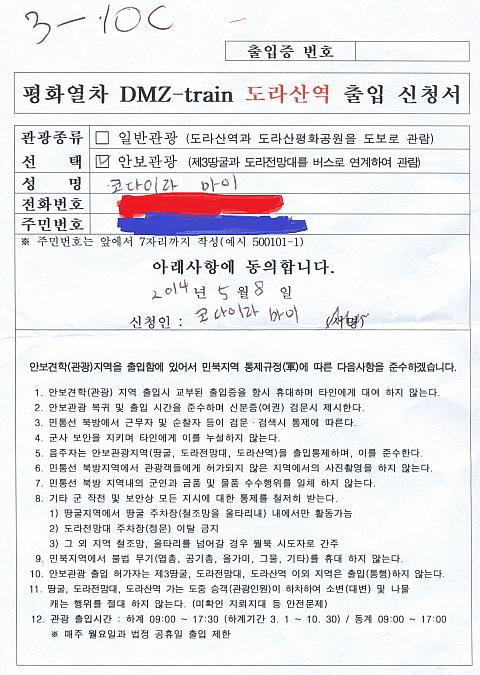 3-10C
출입증 번호
평화열차 DMZ-train 도라산역 출입 신청서
관광종류 □ 일반관광 (도라산역과 도라산평화공원을 도보로 관람)
선 택 ☑ 안보관광 (제3땅굴과 도라전망대를 버스로 연계하여 관람)
성 명 코다이라 마이
전화번호
주민번호
※ 주민번호는 앞에서 7자리까지 작성(예시 500101-1)
아래사항에 동의합니다.
2014년 5월 8일
신청인 : 코다이라 마이 (서명)
안보견학(관광)지역을 출입함에 있어서 민북지역 통제규정(軍)에 따른 다음사항을 준수하겠습니다.
1. 안보견학(관광) 지역 출입시 교부된 출입증을 항시 휴대하며 타인에게 대여 하지 않는다.
2. 안보관광 복귀 및 출입 시간을 준수하며 신분증(여권) 검문시 제시한다.
3. 민통선 북방에서 근무자 및 순찰자 등이 검문ㆍ검색시 통제에 따른다.
4. 군사 보안을 지키며 타인에게 이를 누설하지 않는다.
5. 음주자는 안보관광지역(땅굴, 도라전망대, 도라산역)을 출입통제하며, 이를 준수한다.
6. 민통선 북방지역에서 관광객들에게 허가되지 않은 지역에서의 사진촬영을 하지 않는다.
7. 민통선 북방 지역내의 군인과 금품 및 물품 수수행위를 일체 하지 않는다.
8. 기타 군 작전 및 보안상 모든 지시에 대한 통제를 철저히 받는다.
1) 땅굴지역에서 땅굴 주차장(철조망을 울타리내) 내에서만 활동가능
2) 도라전망대 주차장(정문) 이탈 금지
3) 그 외 지역 철조망, 울타리를 넘어갈 경우 월북 시도자로 간주
9. 민북지역에서 불법 무기(엽총, 공기총, 올가미, 그물, 기타)를 휴대 하지 않는다.
10. 안보관광 출입 허가자는 제3땅굴, 도라전망대, 도라산역 이외 지역은 출입(통행)하지 않는다.
11. 땅굴, 도라전망대, 도라산역 가는 도중 승객(관광인원)이 하차하여 소변(대변) 및 나물
캐는 행위를 절대 하지 않는다. (미확인 지뢰지대 등 안전문제)
12. 관광 출입시간 : 하계 09:00 ~ 17:30 (하계기간 3. 1 ~ 10. 30) / 동계 09:00 ~ 17:00
※ 매주 월요일과 법정 공휴일 출입 제한